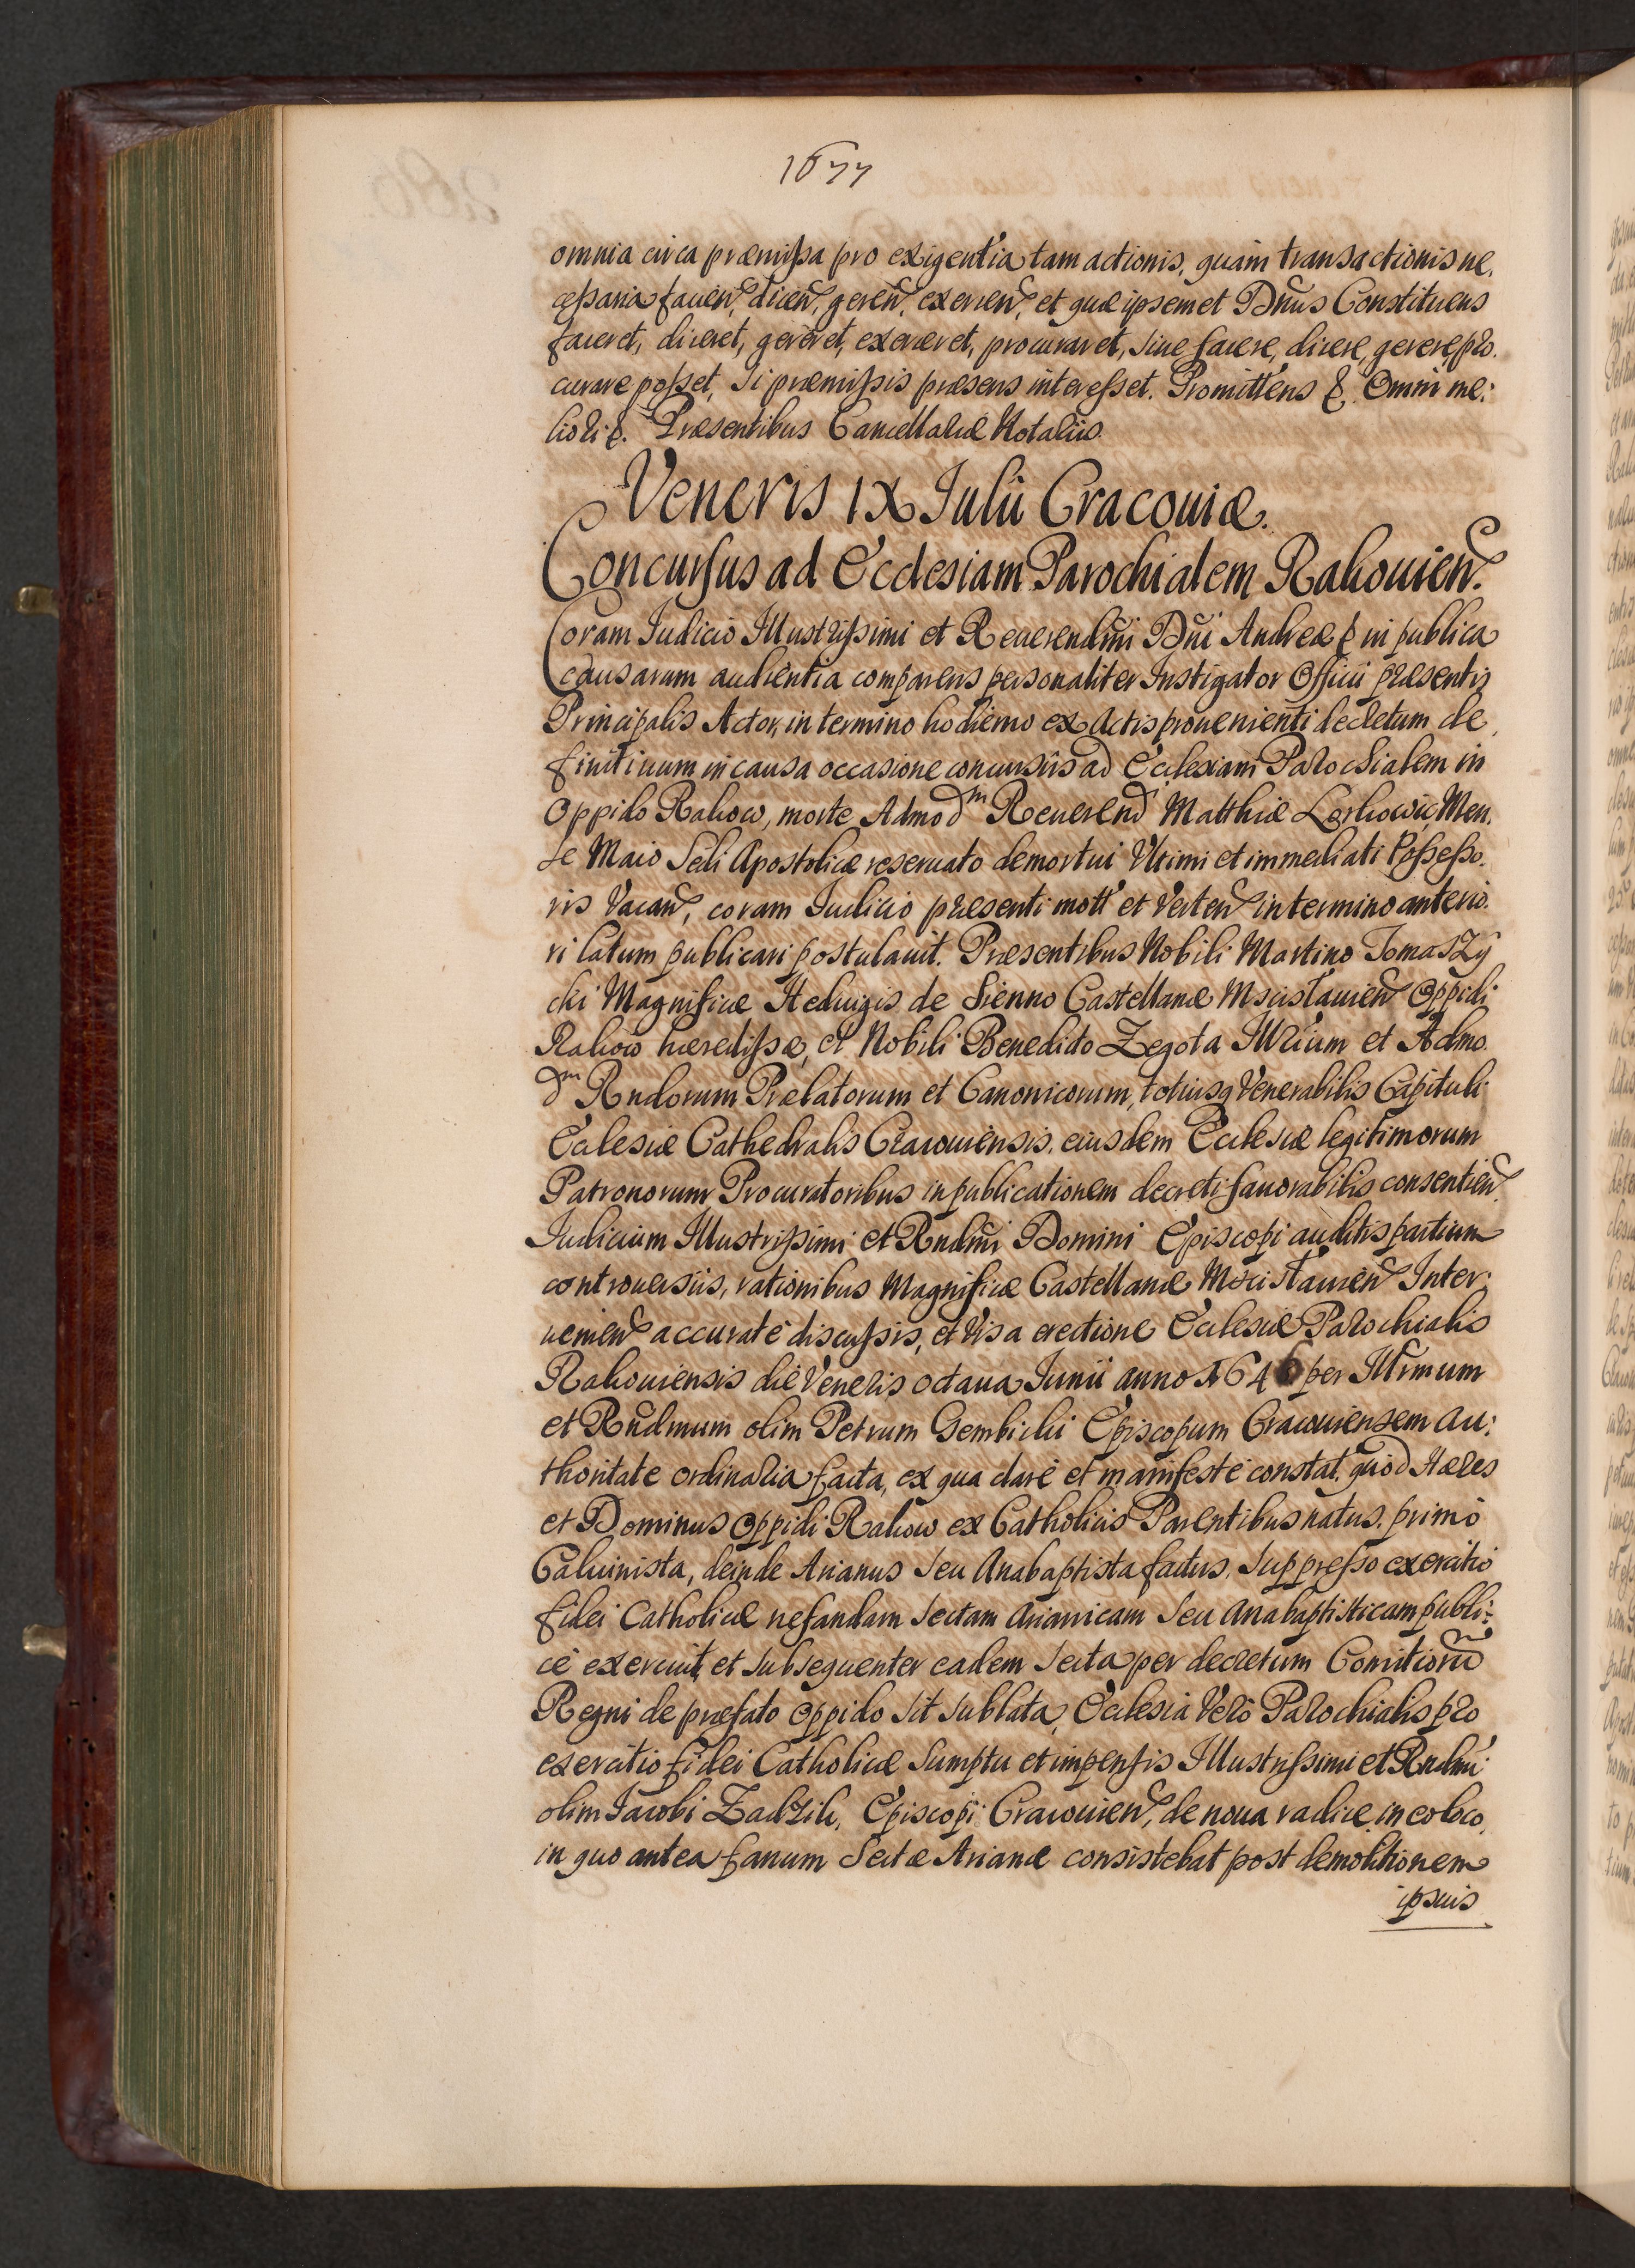 1677
omnia circa præmissa pro exigentia tam actionis, quàm transactionis ne,
cessaria facien, dicen, geren, exercen, et quæ ipsemet Dnus Constituens
faceret, diceret, gereret, exerceret, procuraret, siue facere, dicere, gerere, pro,
curare posset, si præmissis præsens interesset. Promittens &. Omni me:
liori &. Præsentibus Cancellariæ Notariis.
Veneris IX Iulii Cracouiæ.
Concursus ad Ecclesiam Parochialem Rakouien.
Coram Iudicio Illustrissimi et Reuerendmi Dni Andreæ & in publica
causarum audientia comparens personaliter Instigator Officii præsentis
Principalis Actor, in termino hodierno ex Actis prouenienti decretum de,
finitiuum in causa occasione concursûs ad Ecclesiam Parochialem in
Oppido Rakow, morte Admodm Reuerend Matthiæ Men,
se Maio Sedi Apostolicæ reseruato demortui Vltimi et immediati Possesso,
ris Vacan, coram Iudicio præsenti mott et Verten in termino anterio,
ri latum publicari postulauit. Præsentibus Nobili Martino Tomaszy
cki Magnificæ Heduigis de Sienno Castellanæ Mscislauien Oppidi
Rakow hæredissæ, et Nobili Benedicto Zegota Illrium et Admo
dm Rndorum Prælatorum et Canonicorum, totiusq Venerabilis Capituli
Ecclesiæ Cathedralis Cracouiensis, eiusdem Ecclesiæ legitimorum
Patronorum Procuratoribus in publicationem decreti fauorabilis consentien.
Iudicium Illustrissimi et Rndmi Domini Episcopi auditis partium
controuersiis, rationibus Magnificæ Castellanæ Mscislauien Inter:
uenien accuratè discussis, et Visa erectione Ecclesiæ Parochialis
Rakouiensis die Veneris octaua Iunii anno 1646 per Illrmum
et Rndmum olim Petrum Gembicki Episcopum Cracouiensem au:
thoritate ordinaria facta, ex qua clarè et manifestè constat, quòd Hæres
et Dominus Oppidi Rakow ex Catholicis Parentibus natus, primò
Caluinista, deinde Arianus seu Anabaptista factus, suppresso exercitio
fidei Catholicæ nefandam sectam Arianicam seu Anabaptisticam publi:
cè exercuit, et subsequenter eadem secta per decretum Comitioru
Regni de præfato Oppido sit sublata, Ecclesia Verò Parochialis pro
exercitio fidei Catholicæ sumptu et impensis Illustrissimi et Rndmi
olim Iacobi Zadzik, Episcopi Cracouien, de noua radice, in eo loco,
in quo antea fanum Sectæ Arianæ consistebat post demolitionem
ipsius